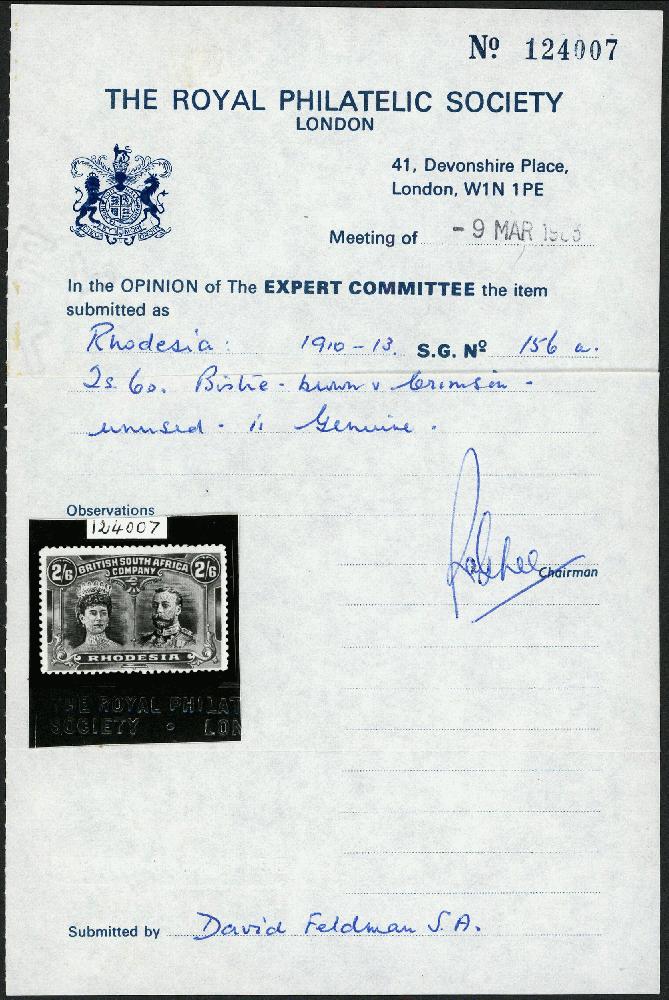 Nº 124007
THE ROYAL PHILATELIC SOCIETY
LONDON
41, Devonshire Place,
London, W1N 1PE
Meeting of - 9 MAR
In the OPINION of The EXPERT COMMITTEE the item
submitted as
Rhodesia: 1910-13. S.G. Nº 156 a.
2s 6d. Bistre-brown & Crimson -
unused - is Genuine.
Observations
124007
2/6 BRITISH SOUTH AFRICA 2/6
COMPANY
RHODESIA
Chairman
THE ROYAL PHILAT
SOCIETY • LON
Submitted by David Feldman S.A.